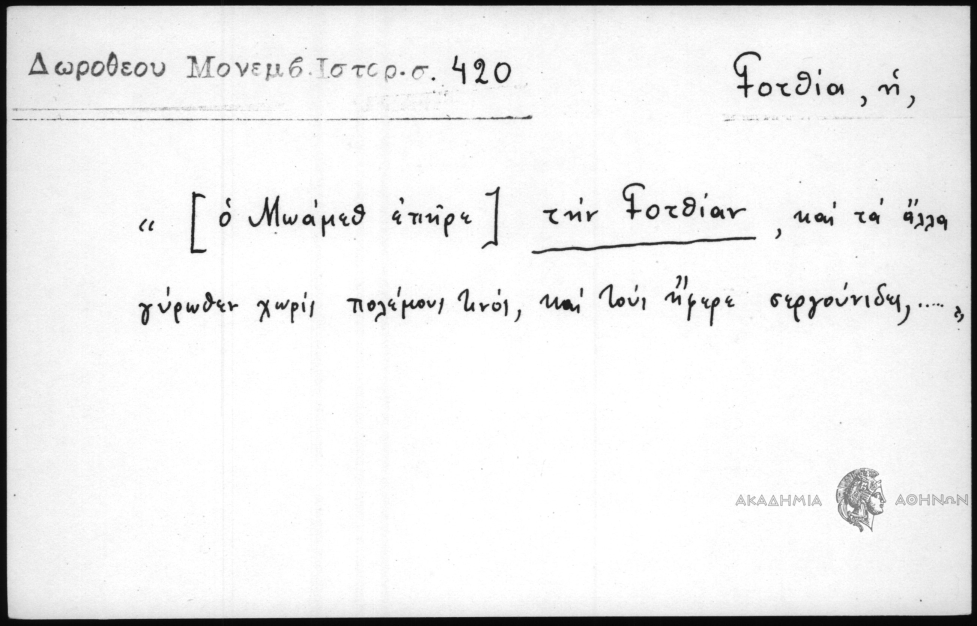 Δωροθεου Μονεμβ. Ιστορ. σ. 420
Γοτθία, ἡ,
“ [ὁ Μωάμεθ ἐπῆρε] τὴν Γοτθίαν, καὶ τὰ ἄλλα
γύρωθεν χωρὶς πολέμους τινὸς, καὶ τοὺς ἤφερε σεργούνιδες, ..... „
ΑΚΑΔΗΜΙΑ ΑΘΗΝΩΝ